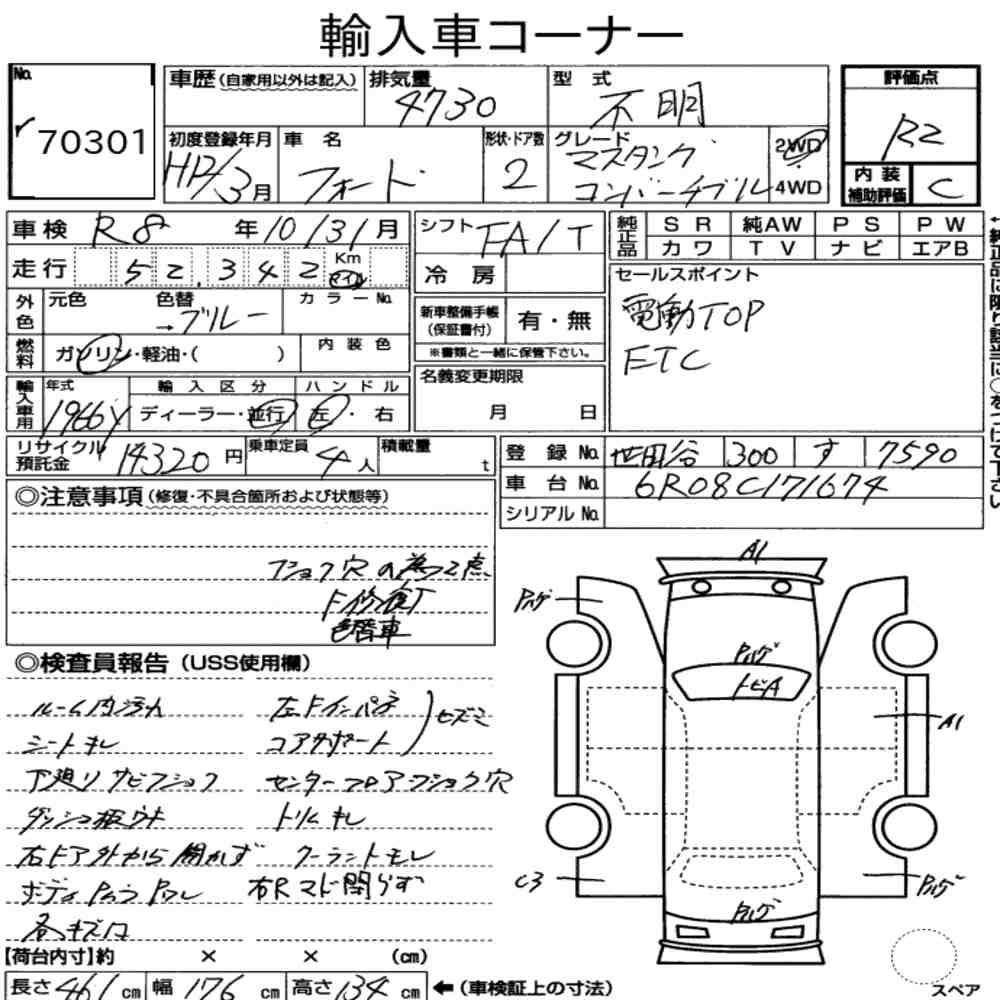 輸入車コーナー
No. 70301
車歴(自家用以外は記入) 排気量 4730 型式 不明
評価点 R2
初度登録年月 H12/3月 車名 フォード 形状・ドア数 2 グレード マスタング コンバーチブル 2WD 4WD
内装補助評価 C
車検 R8年10/31月 シフト FA/T
純正品 SR 純AW PS PW
カワ TV ナビ エアB
走行 52,342 Km マイル 冷房
セールスポイント
電動TOP
ETC
外色 元色 色替 →ブルー カラーNo.
新車整備手帳(保証書付) 有・無
※書類と一緒に保管下さい。
燃料 ガソリン・軽油・( ) 内装色
名義変更期限 月 日
輸入車用 年式 1966y 輸入区分 ディーラー・並行 ハンドル 左・右
リサイクル預託金 14320円 乗車定員 4人 積載量 t
登録No. 世田谷 300 す 7590
車台No. 6R08C171674
シリアルNo.
◎注意事項(修復・不具合箇所および状態等)
フショク穴の為フ2点
F修復丁
色替車
◎検査員報告(USS使用欄)
ルーム内汚れ 左Fインパネ
シートキレ コアサポート )ヒズミ
下廻りサビフショク センターフロアフショク穴
ダッシュ板ウキ トリムキレ
右Fドア外から開かず クーラントモレ
ボディPムラPワレ 右Rマド閉らず
各キズ凹
A1
Pハゲ
Pハゲ
トビA
A1
C3
Pハゲ
Pハゲ
【荷台内寸】約 × × (cm)
長さ461cm 幅176cm 高さ134cm ←(車検証上の寸法)
スペア